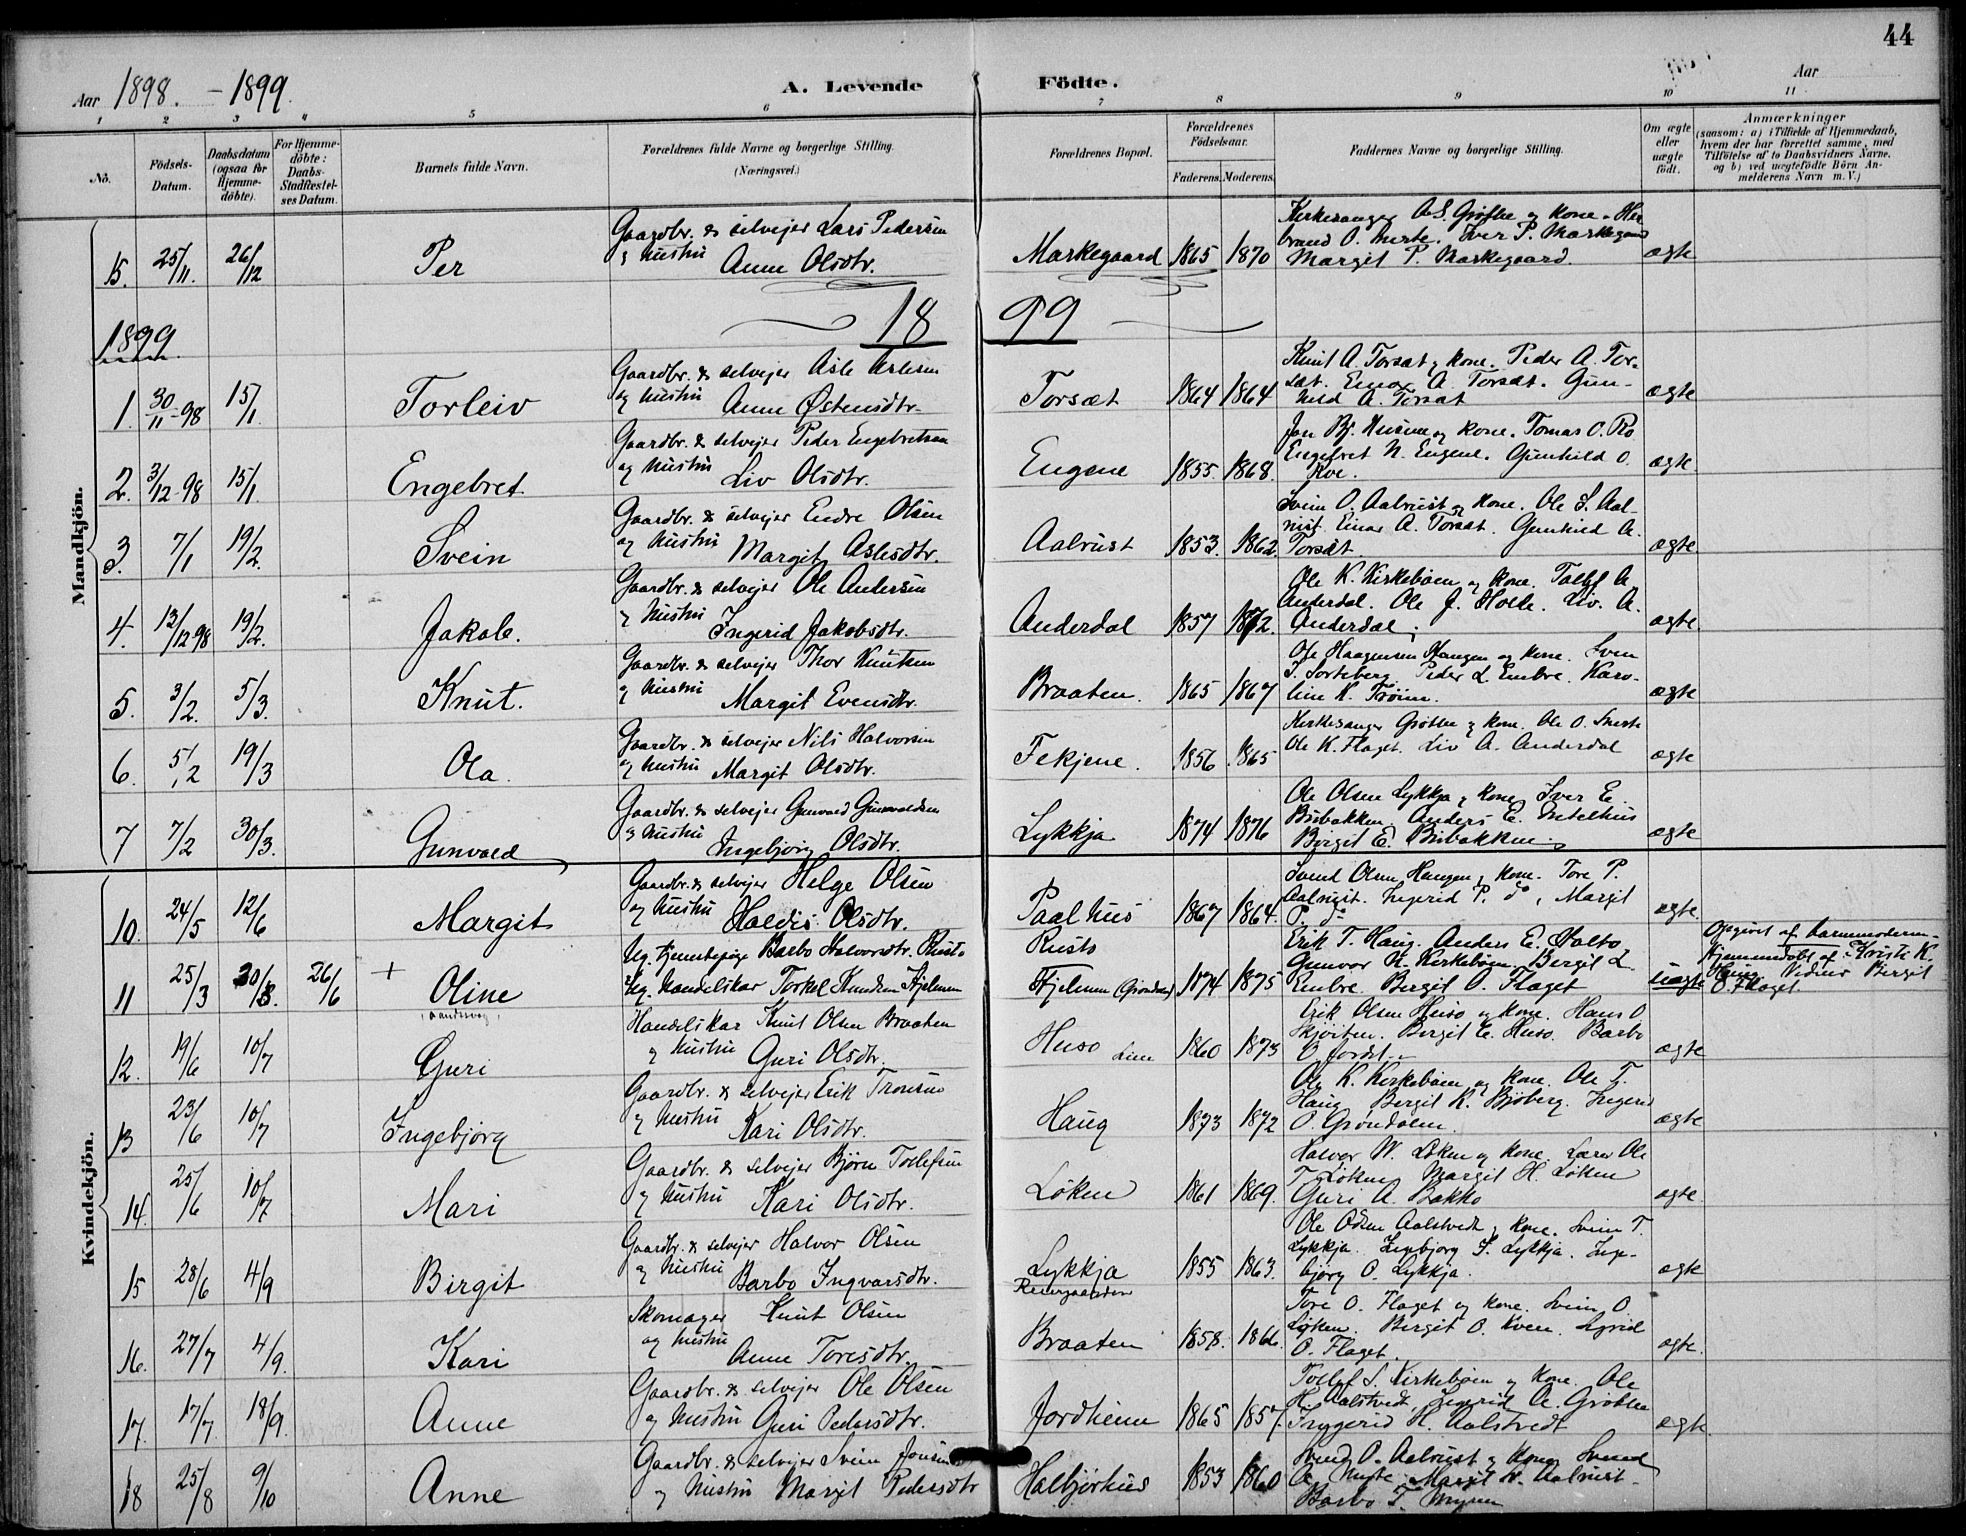 44
Aar 1898. - 1899. A. Levende Födte. Aar
1 2 3 4 5 6 7 8 9 10 11
No.
Födsels-Datum.
Daabsdatum (ogsaa for Hjemme-döbte).
For Hjemme-döbte: Daabs-Stadfæstel-ses Datum.
Barnets fulde Navn.
Forældrenes fulde Navne og borgerlige Stilling. (Næringsvei.)
Forældrenes Bopæl.
Forældrenes Födselsaar.
Faderens. Moderens.
Faddernes Navne og borgerlige Stilling.
Om ægte eller uægte födt.
Anmærkninger
(saasom: a) i Tilfælde af Hjemmedaab,
hvem der har forrettet samme, med
Tilföielse af to Daabsvidners Navne,
og b) ved uægtefödte Börn An-
melderens Navn m. V.)
Mandkjön.
15. 25/11. 26/12 Per
Gaardbr. & selvejer Lars Pedersen
og Hustru Anne Olsdtr.
Markegaard 1865 1870
Kirkesanger A.S. Grøthe og Kone. Her-
brand O. Snerte. Iver P. Markegaard
Margit P. Markegaard.
ægte
1899 18 99
1. 30/11-98 15/1. Torleiv
Gaardbr. & selvejer Asle Aslesen
og Hustru Anne Østensdtr.
Torsæt 1864 1864
Knut A. Torsæt og Kone. Peder A. Tor-
sæt. Einar A. Torsæt. Gun-
hild A. Torsæt
ægte
2. 3/12-98 15/1. Engebret
Gaardbr. & selvejer Peder Engebretsen
og Hustru Liv Olsdtr.
Eugene 1855. 1868.
og Kone. Tomas O.
Engebret N. Eugene. Gunhild O.
ægte
3. 7/1 19/2. Svein
Gaardbr. & selvejer Endre Olsen
og Hustru Margit Aslesdtr.
Aalrust 1853. 1862.
Svein O. Aalrust og Kone. Ole S. Aal-
rust. Einar A. Torsæt. Gunhild A.
Torsæt.
ægte
4. 13/12 98 19/2. Jakob.
Gaardbr. & selvejer Ole Andersen
og Hustru Ingerid Jakobsdtr.
Anderdal 1857 1872.
Ole K. Kirkebøen og Kone. Tollef A.
Anderdal. Ole J. Holle. Liv. A.
Anderdal.
ægte.
5. 3/2. 5/3. Knut.
Gaardbr. & selvejer Thor Knutsen
og Hustru Margit Evensdtr.
Braaten. 1865 1867
Ole Haagensen Haugen og Kone. Sven
S. Sorteberg. Peder L. Embre. Karo-
line K. Trøim.
ægte
6. 5/2 19/3 Ola.
Gaardbr. & selvejer Nils Halvorsen
og Hustru Margit Olsdtr.
Fekjene. 1856 1865
Kirkesanger Grøthe og Kone. Ole O. Snerte
Ole K. Flaget. Liv A. Anderdal
ægte
7 7/2 30/3. Gunvald
Gaardbr. & selvejer Gunvald Gunvaldsen
og Hustru Ingebjørg Olsdtr.
Lykkja 1874 1876
Ole Olsen Lykkja og Kone. Iver E.
Bribakken. Anders E.
Birgit E. Bribakken.
ægte
Kvindekjön.
10. 24/5 12/6 Margit
Gaardbr. & selvejer Helge Olsen
og Hustru Haldis Olsdtr.
Paalhus 1867 1864.
Svend Olsen Haugen og Kone. Tore P.
Aalrust. Ingerid P. do, Margit
P. do
ægte.
11 25/3 30/3. 26/6 + Oline
Ug. Tjenestepige Barbo Halvorsdtr. Rusto
Ug. Handelskar Torkel Knudsen Hjelmen
Rusto
Hjelmen (Grøndal) 1874 1875
Erik T. Haug. Anders E. Holto
Gunvor K. Kirkebøen. Bergit L.
Embre. Bergit O. Flaget
uægte
Opgivet af barnemoderen.
Hjemmedøbt af Kristi K.
Haug. Vidner Birgit
O. Flaget.
12. 19/6 10/7 Guri
Handelskar Knut Olsen Braaten
og Hustru Guri Olsdtr.
Huso 1860 1873
Erik Olsen Huso og Kone. Hans O.
Bergit E. Huso. Barbo
ægte
13 23/6 10/7 Ingebjørg
Gaardbr. & selvejer Erik Tronsen
og Hustru Kari Olsdtr.
Haug 1873 1872
Ole K. Kirkebøen og Kone. Ole T.
Haug. Bergit K. Bjøberg. Ingerid
O. Grøndalen.
ægte
14. 25/6 10/7 Mari
Gaardbr. & selvejer Bjørn Tollefsen
og Hustru Kari Olsdtr.
Løken 1861 1869.
Halvor W. Løken og Kone. Lærer Ole
T. Løken. Margit H. Løken
Guri A. Bakko
ægte
15 28/6 4/9 Birgit
Gaardbr. & selvejer Halvor Olsen
og Hustru Barbo Ingvarsdtr.
Lykkja 1855 1863.
Ole Odsen Aalstvedt og Kone. Svein T.
Lykkja. Ingebjørg S. Lykkja. Inge-
bjørg O. Lykkja.
ægte
16. 27/7 4/9. Kari
Skomager Knut Olsen
og Hustru Anne Toresdtr.
Braaten 1858. 1866.
Tore O. Flaget og Kone. Svein O.
Løken. Bergit O. Kven. Sigrid
O. Flaget.
ægte.
17. 17/7. 18/9. Anne
Gaardbr. & selvejer Ole Olsen
og Hustru Guri Pedersdtr.
Jordheim 1865 1857.
Tollef S. Kirkebøen og Kone. Ole
H. Aalstvedt, Ingerid A. Grøthe
Ingerid H. Aalstvedt
ægte
18 25/8 9/10 Anne
Gaardbr. & selvejer Svein Jonsen
og Hustru Margit Pedersdtr
Halbjørhus 1853 1860
Svend O. Aalrust og Kone. Svend
Margit Aalrust.
Barbo T. Myren